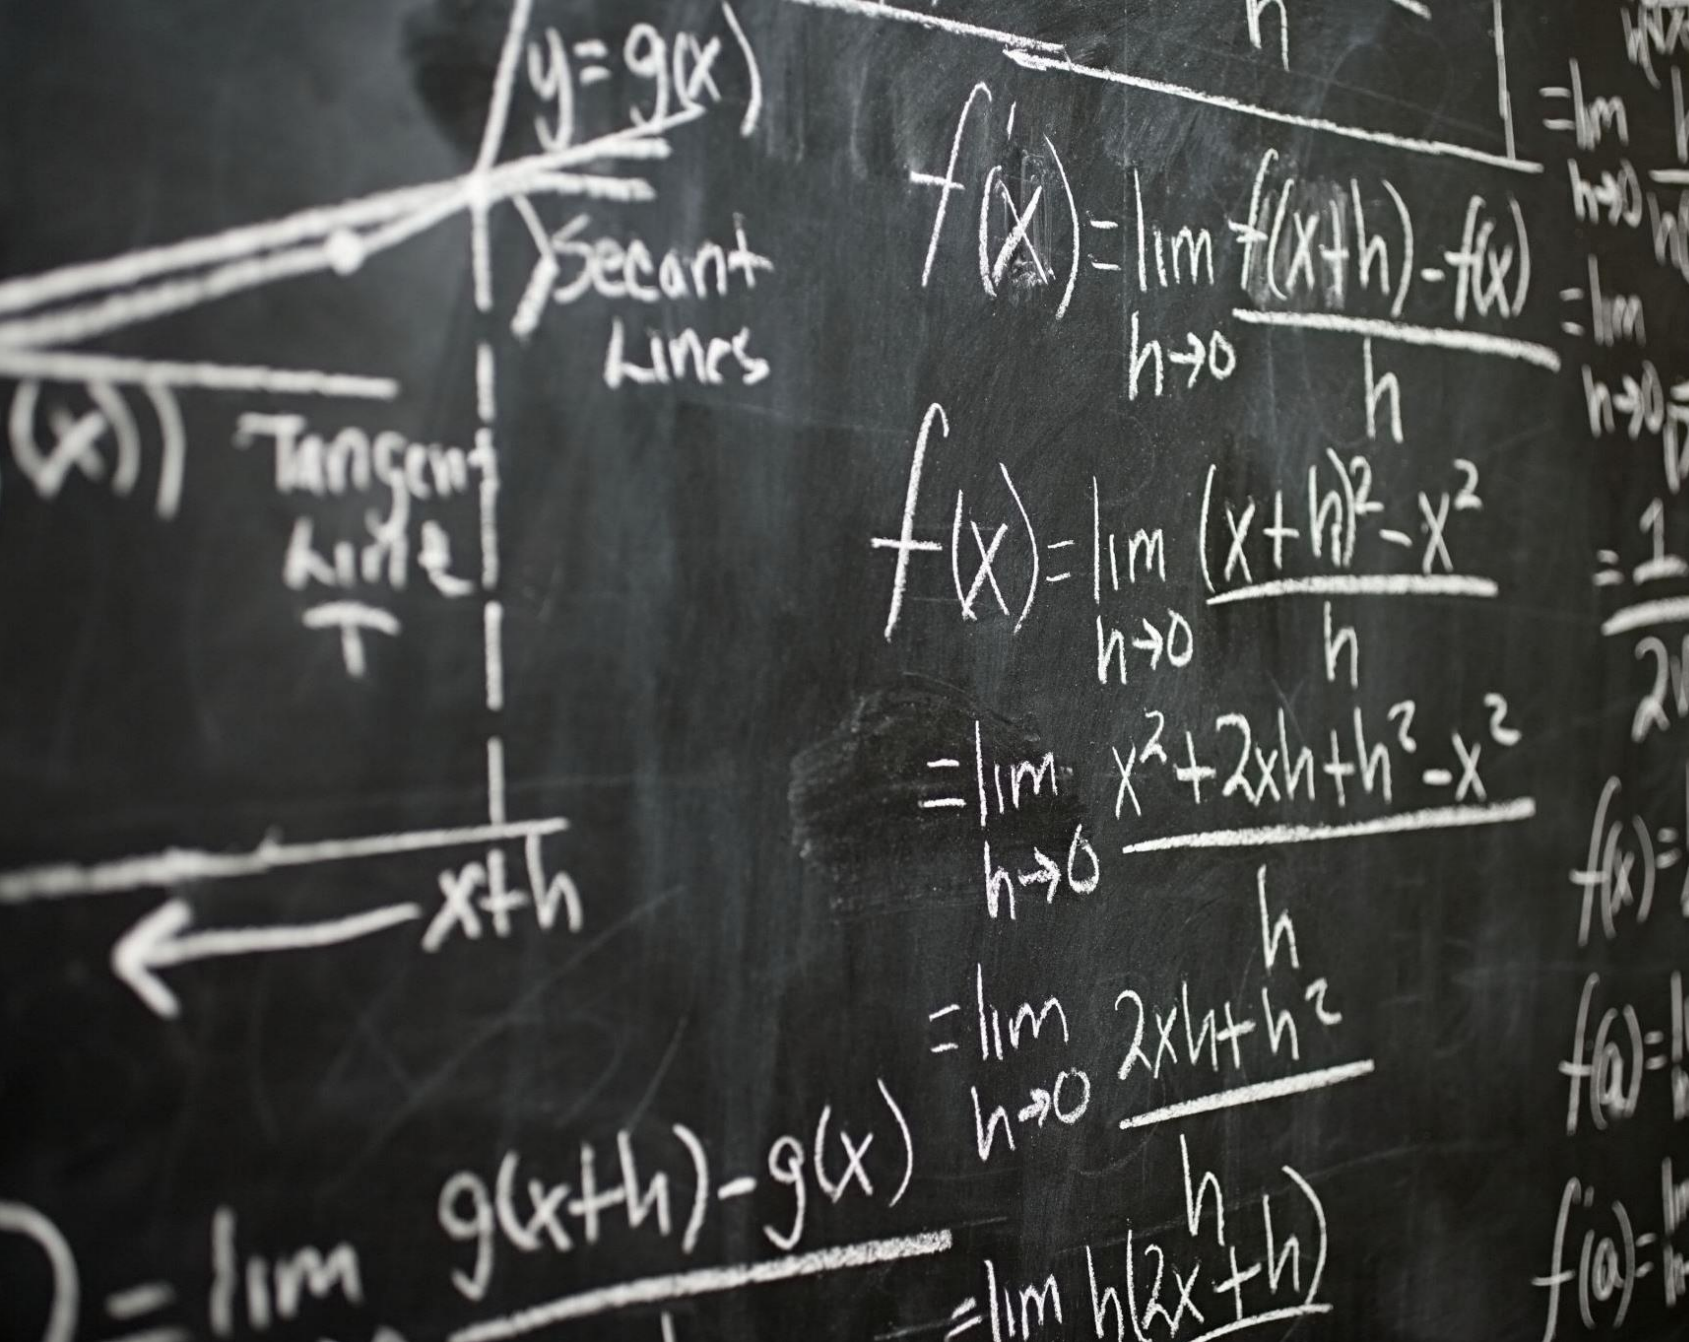 y=g(x)
Secant
Lines
(x))
Tangent
Line
T
x+h
= lim g(x+h)-g(x)
h
f'(x) = lim f(x+h)-f(x)
h→0 h
f(x) = lim (x+h)²-x²
h→0 h
= lim x²+2xh+h²-x²
h→0 h
= lim 2xh+h²
h→0 h
= lim h(2x+h)
= lim
h→0
= lim
h→0
= 1
2
f(x)=
f(a)=
f'(a)=